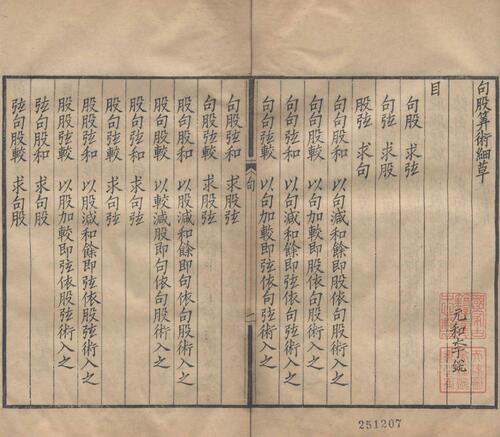 句股筭術細草
元和李銳
目
句股 求弦
句弦 求股
股弦 求句
句句股和 以句減和餘即股依句股術入之
句句股較 以句加較即股依句股術入之
句句弦和 以句減和餘即弦依句弦術入之
句句弦較 以句加較即弦依句弦術入之
句
一
句股弦和 求股弦
句股弦較 求股弦
股句股和 以股減和餘即句依句股術入之
股句股較 以較減股即句依句股術入之
股句弦和 求句弦
股句弦較 求句弦
股股弦和 以股減和餘即弦依股弦術入之
股股弦較 以股加較即弦依股弦術入之
弦句股和 求句股
弦句股較 求句股
251207